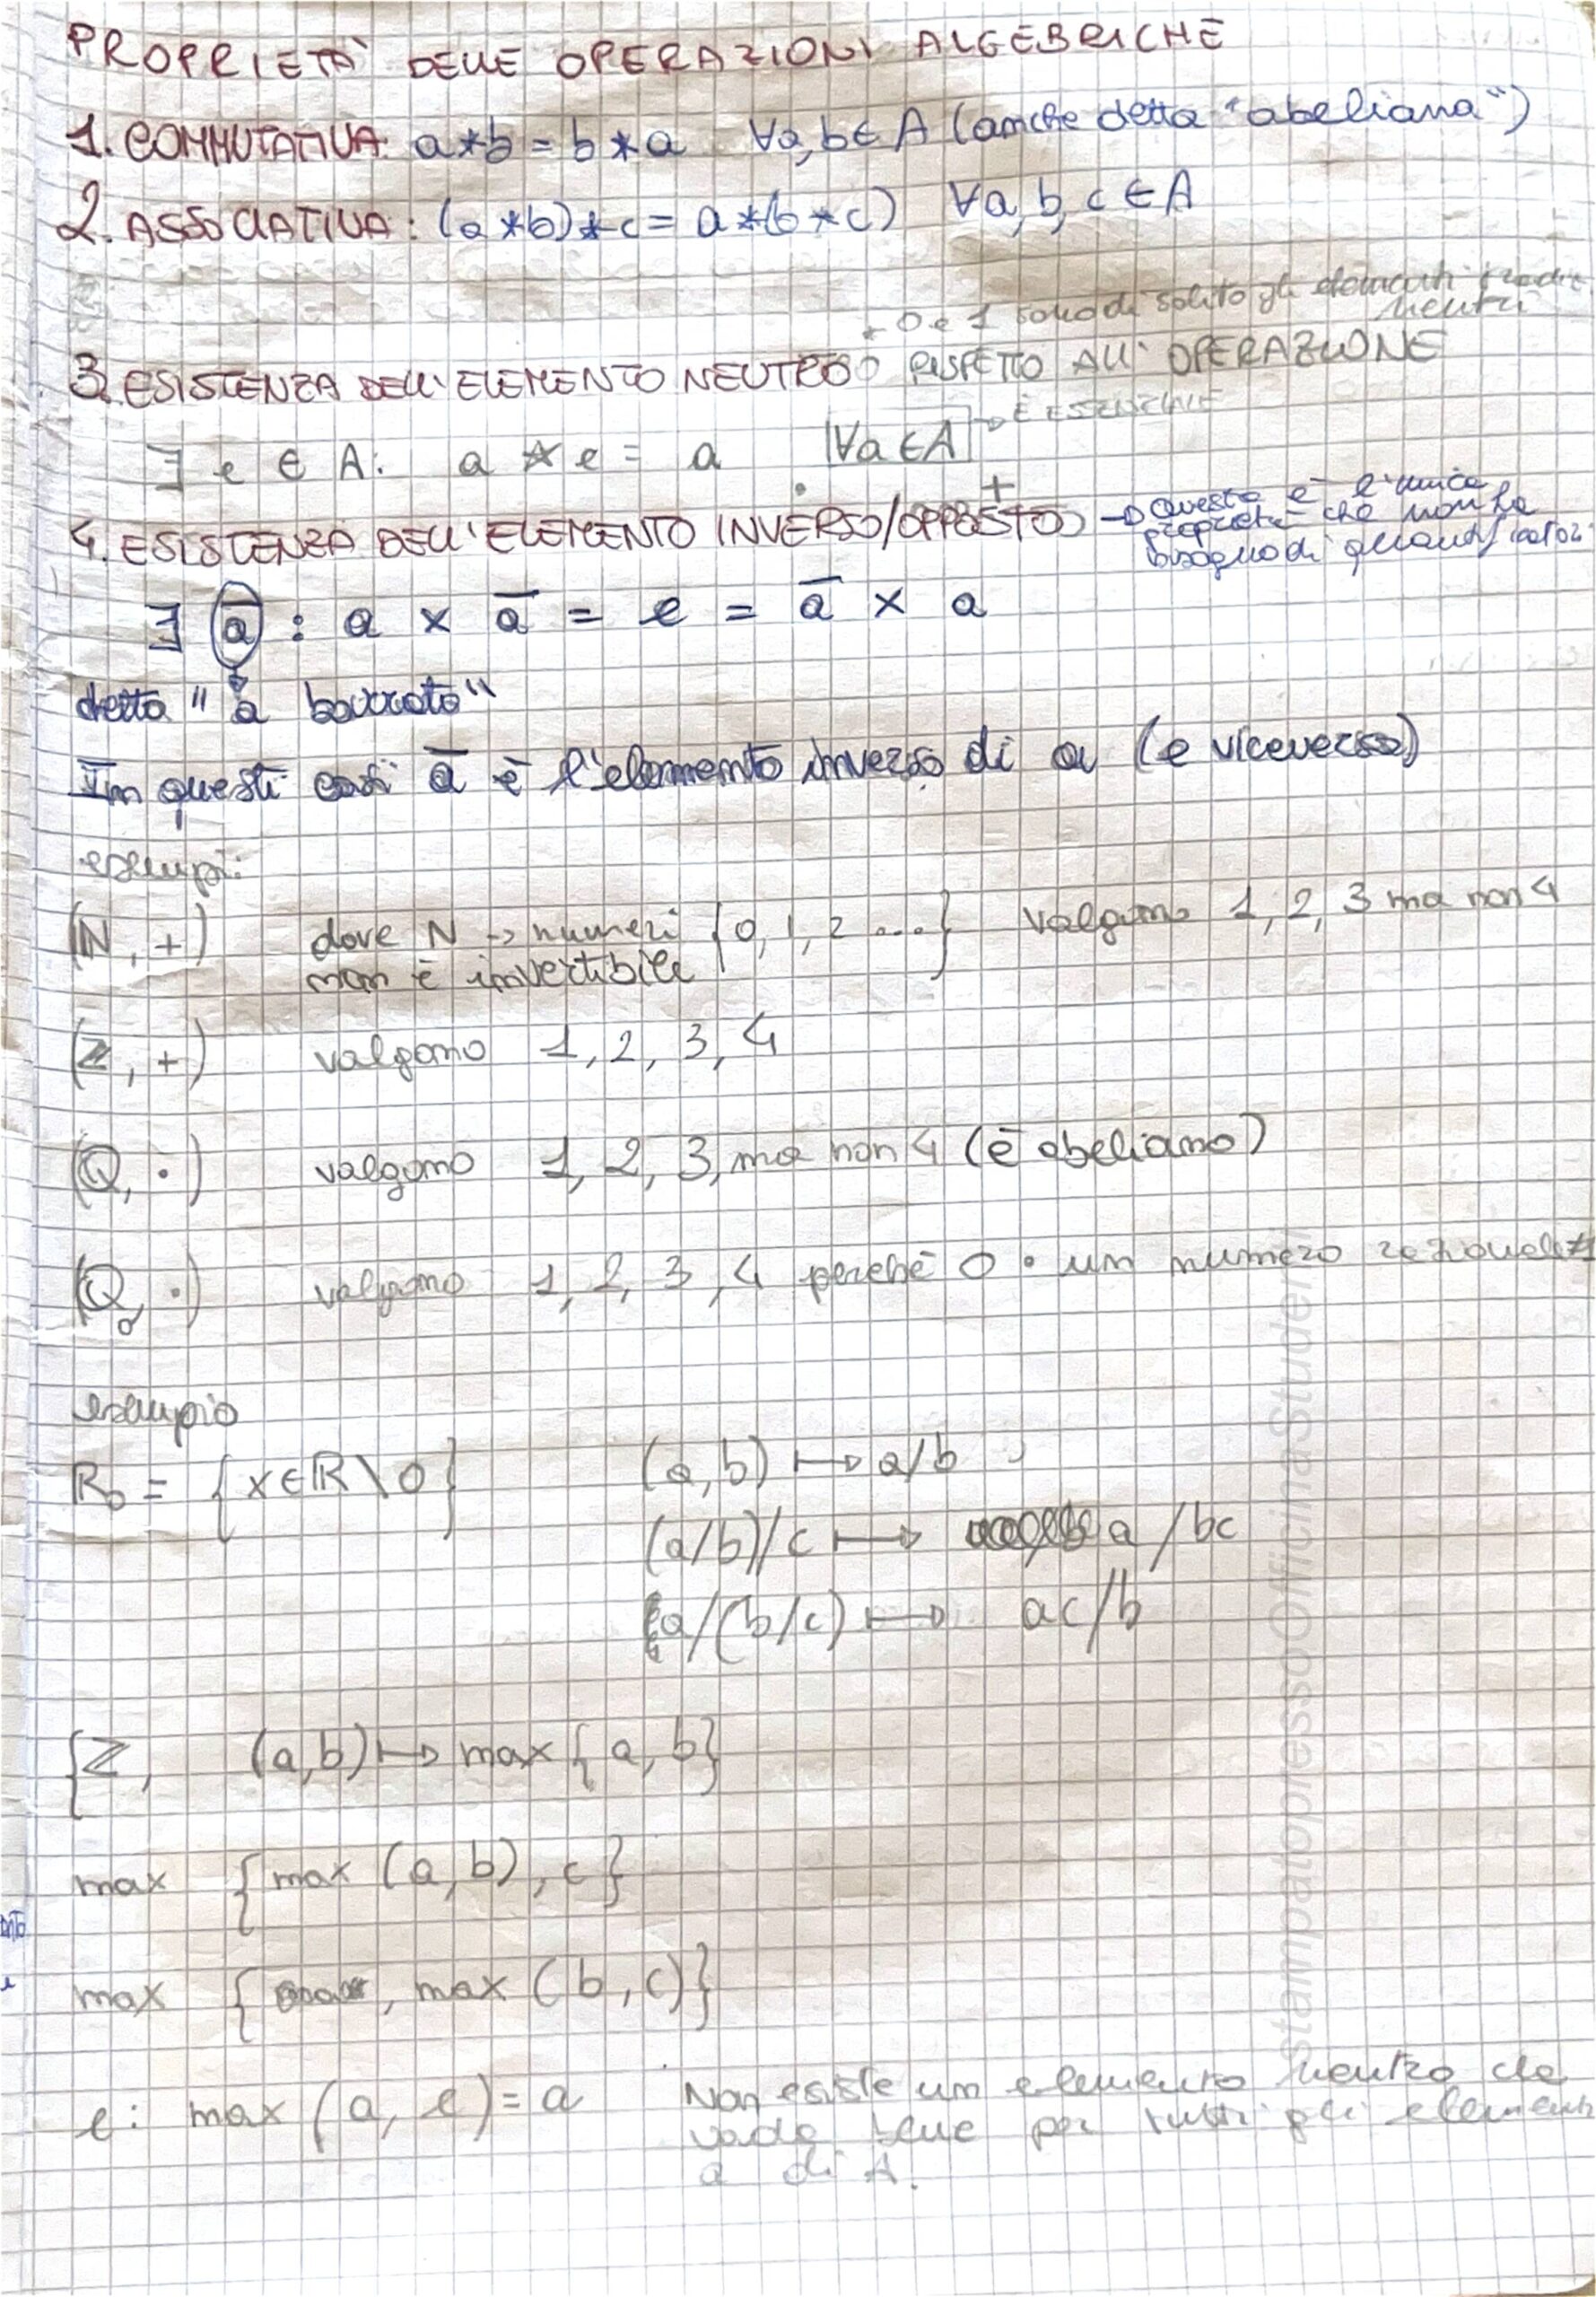 PROPRIETÀ DELLE OPERAZIONI ALGEBRICHE
1. COMMUTATIVA: a*b = b*a ∀a,b∈A (anche detta "abeliana")
2. ASSOCIATIVA: (a*b)*c = a*(b*c) ∀a,b,c∈A
0 e 1 sono di solito gli elementi neutri
3. ESISTENZA DELL'ELEMENTO NEUTRO RISPETTO ALL'OPERAZIONE
∃ e ∈ A: a * e = a |∀a∈A| → È ESSENZIALE
· +
4. ESISTENZA DELL'ELEMENTO INVERSO/OPPOSTO → questa è l'unica
proprietà che non ha
bisogno di quantificatori
∃ ā : a × ā = e = ā × a
detta "a barrato"
In questi casi ā è l'elemento inverso di a (e viceversa)
esempi:
(N, +) dove N → numeri {0, 1, 2 ...} valgono 1, 2, 3 ma non 4
non è invertibile
(Z, +) valgono 1, 2, 3, 4
(Q, ·) valgono 1, 2, 3, ma non 4 (è abeliano)
(Q₀, ·) valgono 1, 2, 3, 4 perché 0 · un numero razionale ≠
esempio
R₀ = {x∈R\0} (a,b) ↦ a/b
(a/b)/c ↦ a/bc
a/(b/c) ↦ ac/b
{Z, (a,b) ↦ max{a,b}
max {max (a,b), c}
max { , max (b,c)}
e: max (a, e) = a Non esiste un elemento neutro che
vada bene per tutti gli elementi
a di A.
stampatopressoOfficinaStudenti